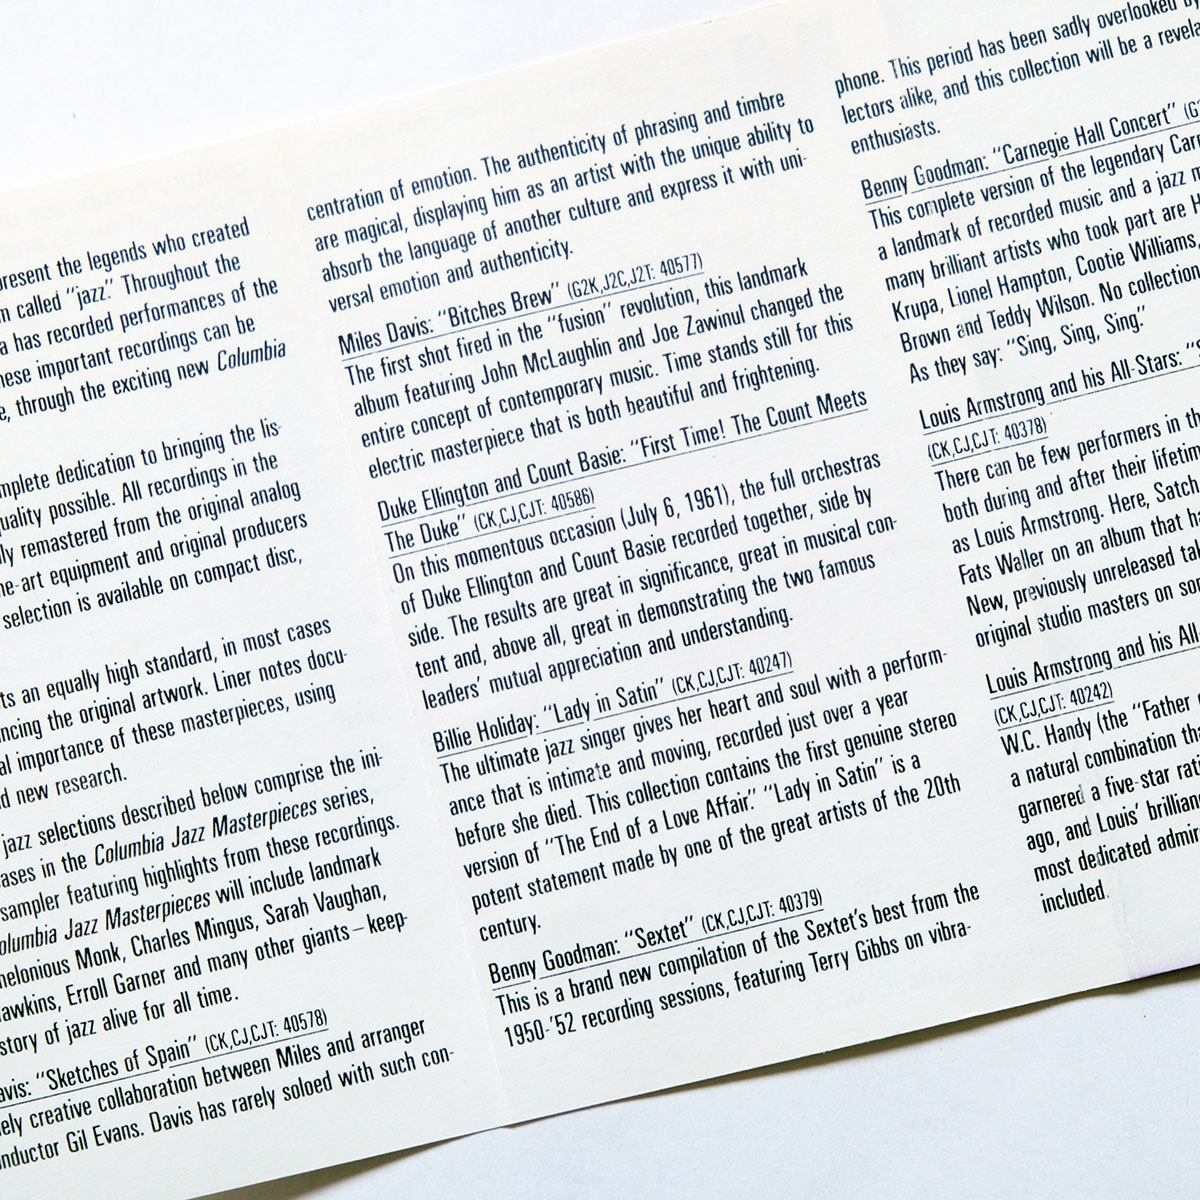 present the legends who created
called "jazz." Throughout the
has recorded performances of the
these important recordings can be
through the exciting new Columbia
complete dedication to bringing the lis-
quality possible. All recordings in the
remastered from the original analog
equipment and original producers
selection is available on compact disc,
an equally high standard, in most cases
the original artwork. Liner notes docu-
importance of these masterpieces, using
new research.
jazz selections described below comprise the ini-
in the Columbia Jazz Masterpieces series,
sampler featuring highlights from these recordings.
Columbia Jazz Masterpieces will include landmark
Thelonious Monk, Charles Mingus, Sarah Vaughan,
Hawkins, Erroll Garner and many other giants – keep-
story of jazz alive for all time.
Davis: "Sketches of Spain" (CK,CJ,CJT: 40578)
creative collaboration between Miles and arranger
conductor Gil Evans. Davis has rarely soloed with such con-
centration of emotion. The authenticity of phrasing and timbre
are magical, displaying him as an artist with the unique ability to
absorb the language of another culture and express it with uni-
versal emotion and authenticity.
Miles Davis: "Bitches Brew" (G2K,J2C,J2T: 40577)
The first shot fired in the "fusion" revolution, this landmark
album featuring John McLaughlin and Joe Zawinul changed the
entire concept of contemporary music. Time stands still for this
electric masterpiece that is both beautiful and frightening.
Duke Ellington and Count Basie: "First Time! The Count Meets
The Duke" (CK,CJ,CJT: 40586)
On this momentous occasion (July 6, 1961), the full orchestras
of Duke Ellington and Count Basie recorded together, side by
side. The results are great in significance, great in musical con-
tent and, above all, great in demonstrating the two famous
leaders' mutual appreciation and understanding.
Billie Holiday: "Lady in Satin" (CK,CJ,CJT: 40247)
The ultimate jazz singer gives her heart and soul with a perform-
ance that is intimate and moving, recorded just over a year
before she died. This collection contains the first genuine stereo
version of "The End of a Love Affair." "Lady in Satin" is a
potent statement made by one of the great artists of the 20th
century.
Benny Goodman: "Sextet" (CK,CJ,CJT: 40379)
This is a brand new compilation of the Sextet's best from the
1950-'52 recording sessions, featuring Terry Gibbs on vibra-
phone. This period has been sadly overlooked by
lectors alike, and this collection will be a
enthusiasts.
Benny Goodman: "Carnegie Hall Concert"
This complete version of the legendary
a landmark of recorded music and a jazz
many brilliant artists who took part are
Krupa, Lionel Hampton, Cootie Williams,
Brown and Teddy Wilson. No collection
As they say: "Sing, Sing, Sing."
Louis Armstrong and his All-Stars:
(CK,CJ,CJT: 40378)
There can be few performers in
both during and after their
as Louis Armstrong. Here, Satch
Fats Waller on an album that
New, previously unreleased
original studio masters on
Louis Armstrong and his
(CK,CJ,CJT: 40242)
W.C. Handy (the "Father
a natural combination
garnered a five-star
ago, and Louis'
most dedicated
included.